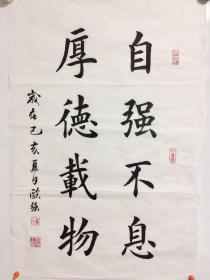 自强不息
厚德載物
歲在己亥夏月歐强